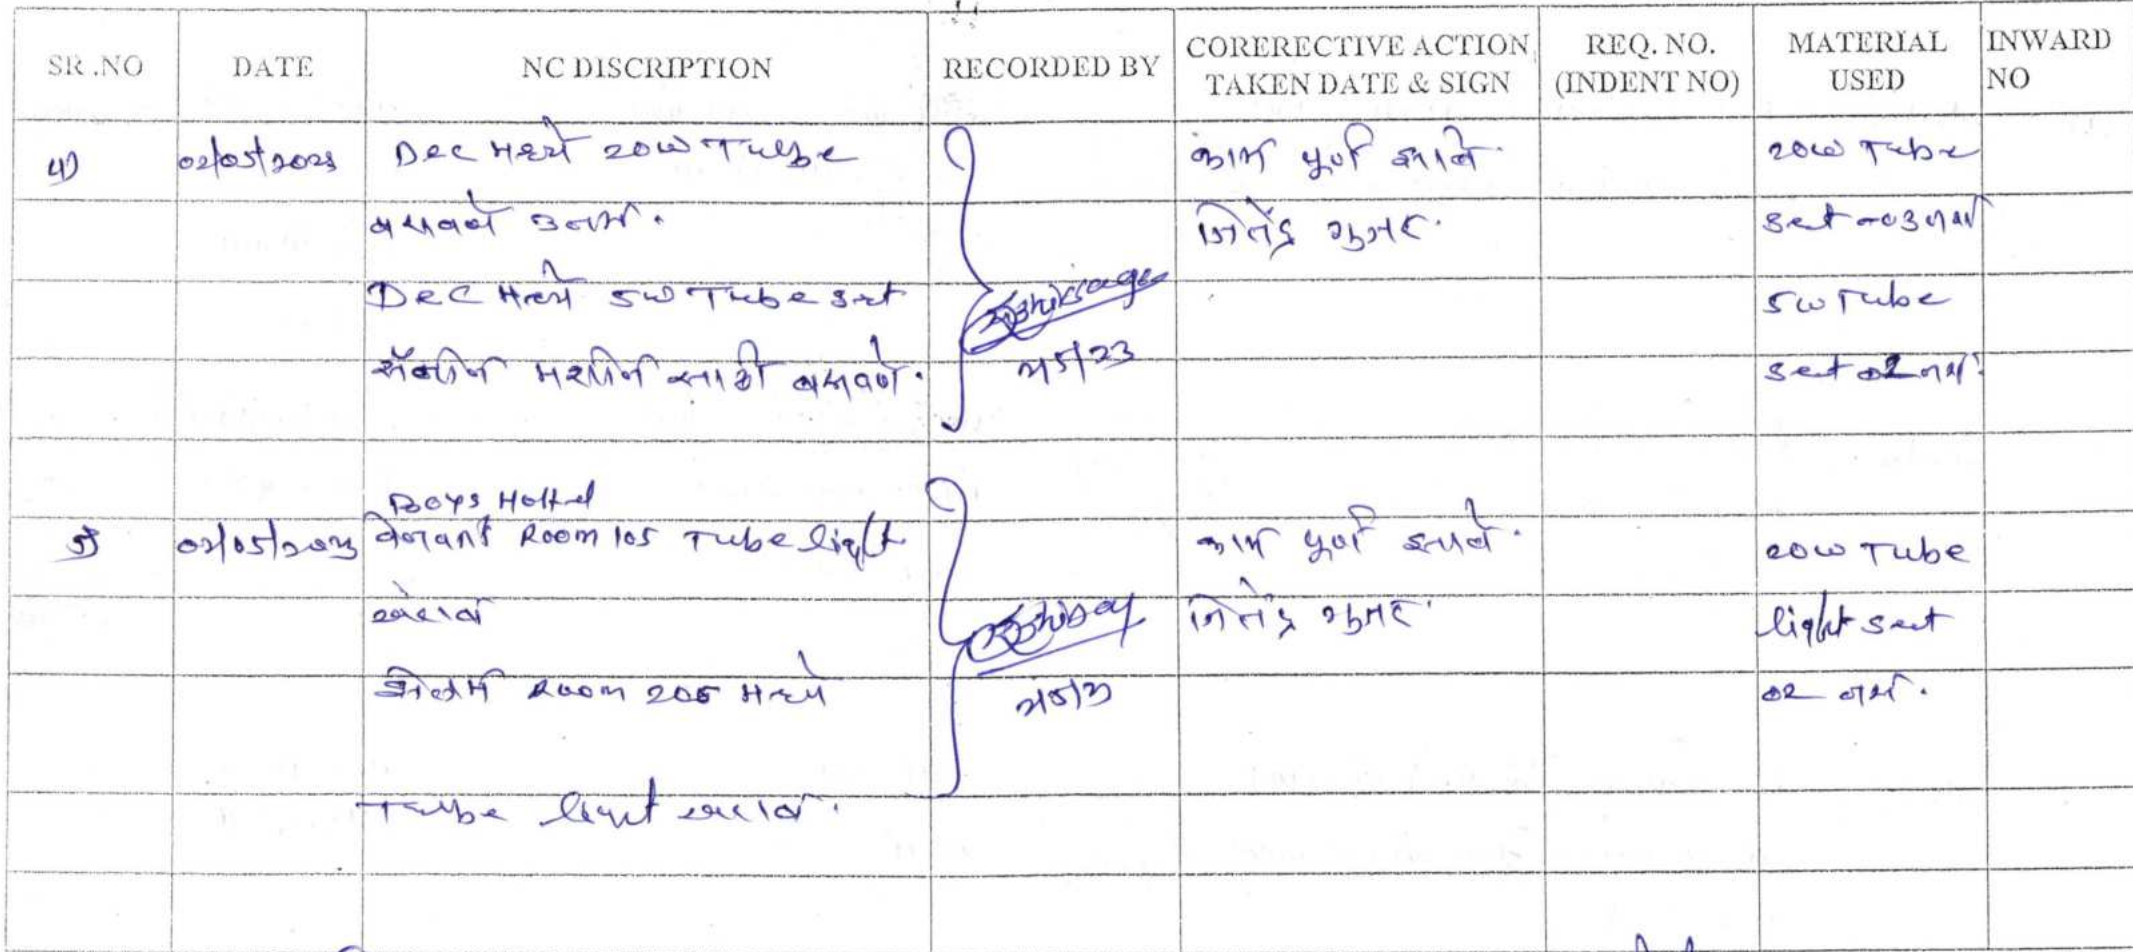 SR .NO DATE NC DISCRIPTION RECORDED BY CORERECTIVE ACTION TAKEN DATE & SIGN REQ. NO. (INDENT NO) MATERIAL USED INWARD NO
02/05/2023 Dec मध्ये 20W Tube काम पूर्ण झाले. 20W Tube
बसवले 3 नग. जितेंद्र गुजर. set - 03 नग
Dec मध्ये 5W Tube set 5W Tube
मशीन साठी बसवणे. 2/5/23 set 02 नग.
Boys Hostel
5) 02/05/2023 Room 105 Tube light काम पूर्ण झाले. 20W Tube
जितेंद्र गुजर. light set
Room 205 मध्ये 2/5/23 02 नग.
Tube light